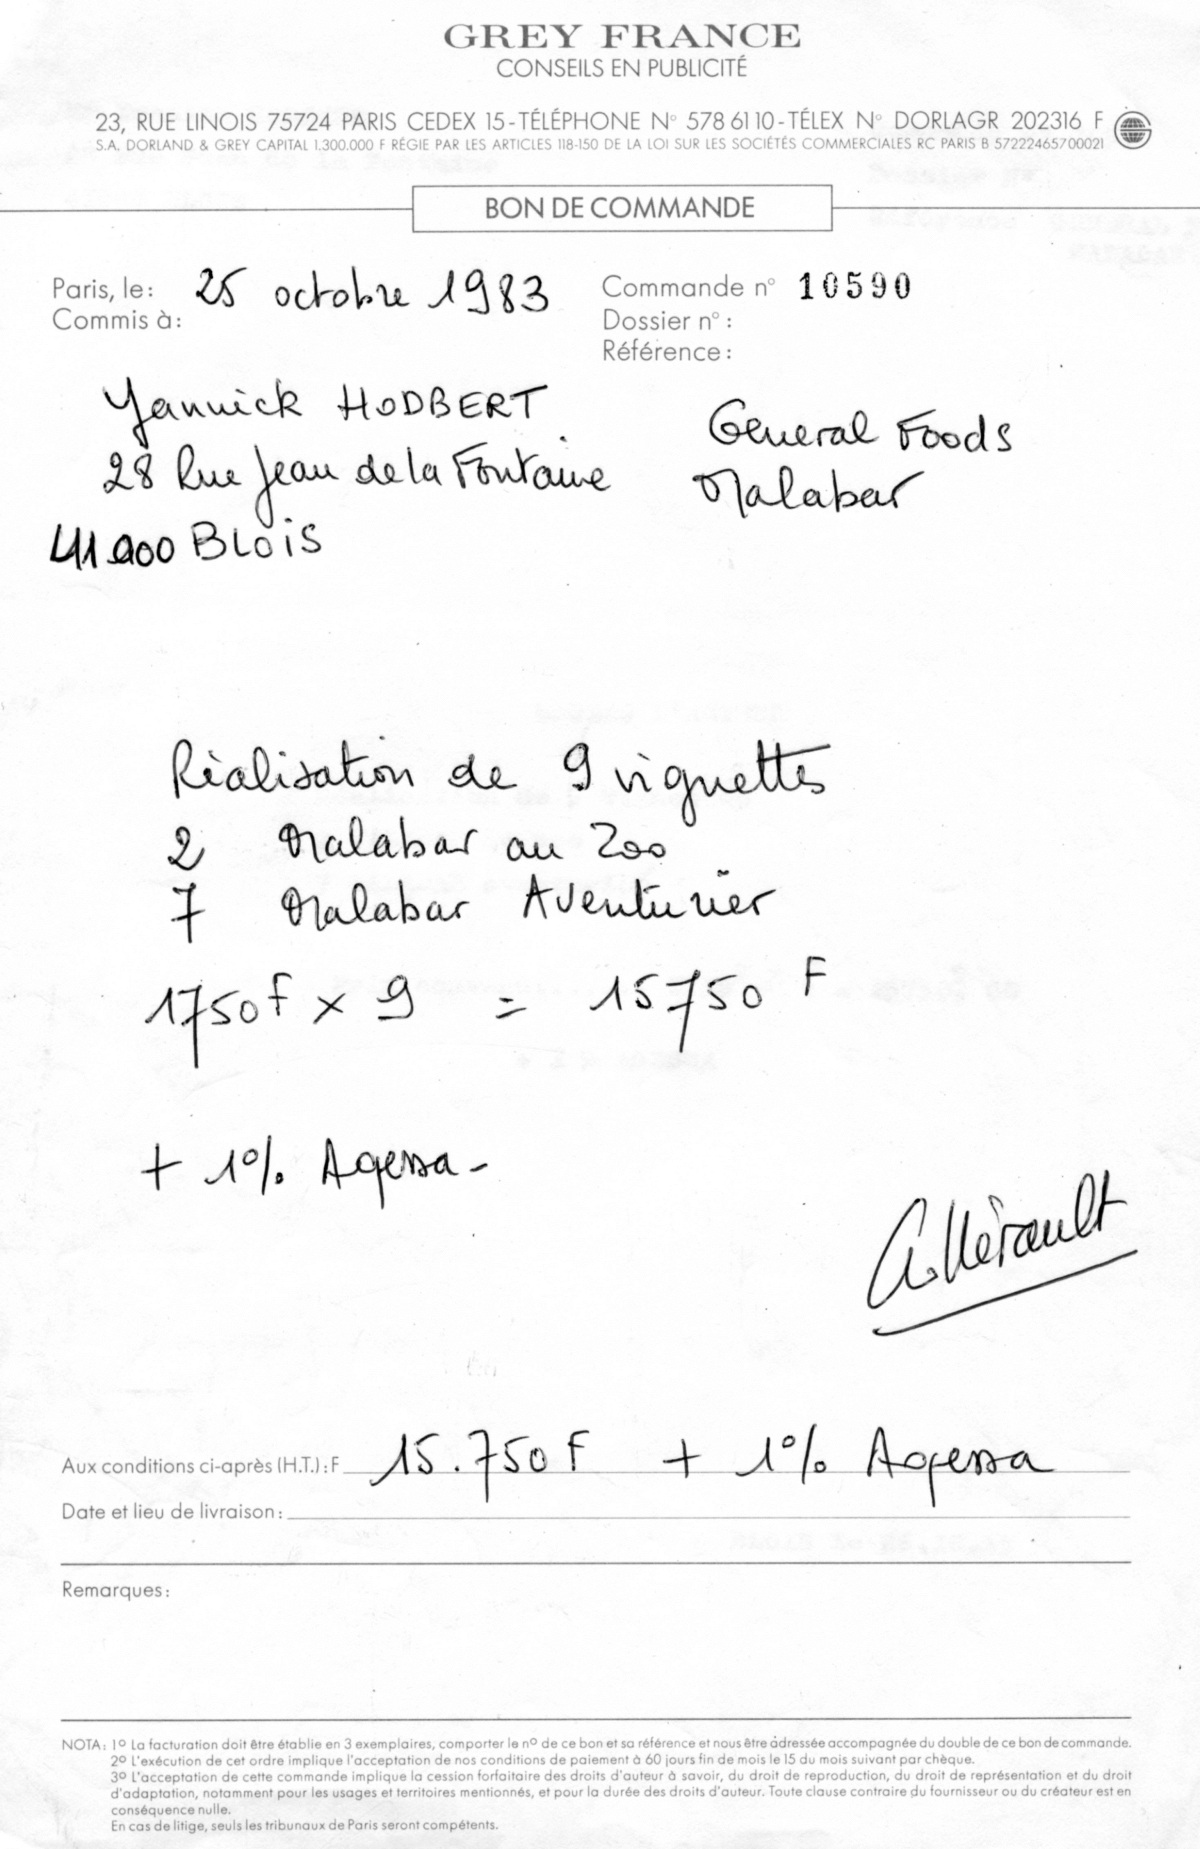 GREY FRANCE
CONSEILS EN PUBLICITÉ
23, RUE LINOIS 75724 PARIS CEDEX 15-TÉLÉPHONE N° 578 61 10-TÉLEX N° DORLAGR 202316 F
S.A. DORLAND & GREY CAPITAL 1.300.000 F RÉGIE PAR LES ARTICLES 118-150 DE LA LOI SUR LES SOCIÉTÉS COMMERCIALES RC PARIS B 57222465700021
BON DE COMMANDE
Paris, le: 25 octobre 1983
Commis à:
Commande n° 10590
Dossier n°:
Référence:
Yannick HODBERT
28 Rue Jean de la Fontaine
41000 BLOIS
General Foods
Malabar
Réalisation de 9 vignettes
2 Malabar au Zoo
7 Malabar Aventurier
1750F x 9 = 15750 F
+ 1% Agessa-
A. Hérault
Aux conditions ci-après (H.T.): F 15.750 F + 1% Agessa
Date et lieu de livraison:
Remarques:
NOTA: 1° La facturation doit être établie en 3 exemplaires, comporter le n° de ce bon et sa référence et nous être adressée accompagnée du double de ce bon de commande.
2° L'exécution de cet ordre implique l'acceptation de nos conditions de paiement à 60 jours fin de mois le 15 du mois suivant par chèque.
3° L'acceptation de cette commande implique la cession forfaitaire des droits d'auteur à savoir, du droit de reproduction, du droit de représentation et du droit
d'adaptation, notamment pour les usages et territoires mentionnés, et pour la durée des droits d'auteur. Toute clause contraire du fournisseur ou du créateur est en
conséquence nulle.
En cas de litige, seuls les tribunaux de Paris seront compétents.